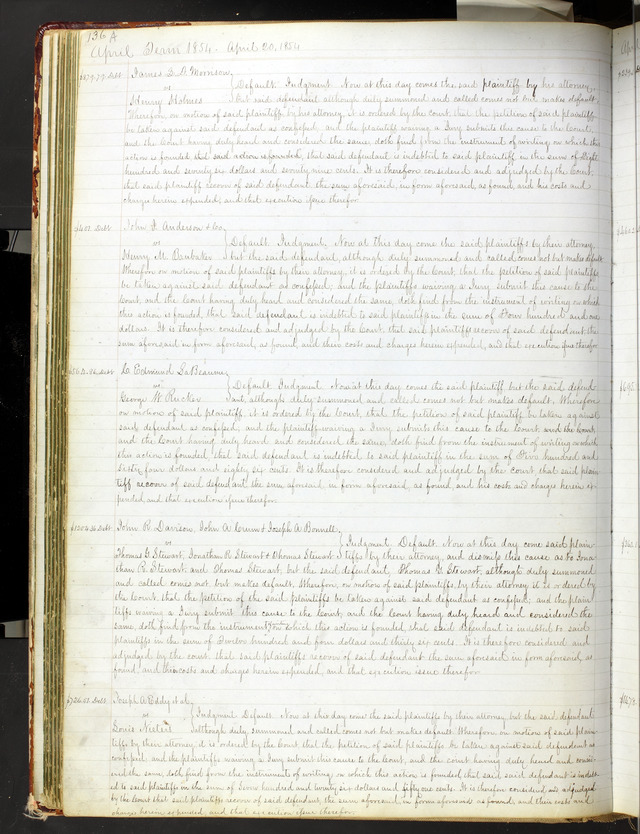 136 A
April Term 1854. April 20, 1854
James L. D. Morrison,
vs
Default. Judgment. Now at this day comes the said plaintiff by his attorney,
Henry Holmes but said defendant although duly summoned and called comes not but makes default.
Wherefore, on motion of said plaintiff by his attorney, it is ordered by the court that the petition of said plaintiff
be taken against said defendant as confessed, and the plaintiff waiving a Jury submits this cause to the Court,
and the Court having duly heard and considered the same, doth find from the instrument of writing on which this
action is founded, that said action is founded, that said defendant is indebted to said plaintiff in the sum of Eight
hundred and seventy six dollars and seventy nine cents. It is therefore considered and adjudged by the Court,
that said plaintiff recover of said defendant the sum aforesaid, in form aforesaid as found, and his costs and
charges herein expended, and that execution issue therefor.
$401. Debt John J. Anderson & Co.
vs
Default. Judgment. Now at this day come the said plaintiffs by their attorney
Henry M. but the said defendant, although duly summoned and called comes not but makes default
Wherefore on motion of said plaintiffs by their attorney, it is ordered by the Court, that the petition of said plaintiffs
be taken against said defendant as confessed, and the plaintiffs waiving a Jury submit this cause to the
Court, and the Court having duly heard and considered the same, doth find from the instrument of writing on which
this action is founded that said defendant is indebted to said plaintiffs in the sum of Four hundred and one
dollars. It is therefore considered and adjudged by the Court that said plaintiffs recover of said defendant, the
sum aforesaid in form aforesaid, as found, and their costs and charges herein expended, and that execution issue therefor
L. Edmund LaBeaume,
vs
Default. Judgment. Now at this day comes the said plaintiff but the said defend-
George W. Rucker ant, although duly summoned and called comes not but makes default. Wherefore
on motion of said plaintiff, it is ordered by the Court, that the petition of said plaintiff be taken against
said defendant as confessed, and the plaintiff waiving a Jury submits this cause to the Court, and the Court
and the Court having duly heard and considered the same, doth find from the instrument of writing on which
this action is founded that said defendant is indebted to said plaintiff in the sum of Five hundred and
sixty four dollars and eighty six cents. It is therefore considered and adjudged by the court, that said plain-
tiff recover of said defendant the sum aforesaid, in form aforesaid, as found, and his costs and charges herein ex-
pended and that execution issue therefor.
$1204.36 Debt John R. Davison, John A. Crum & Joseph A. Bonnell,
vs
Judgment Default. Now at this day come said plain-
Thomas G. Stewart, Jonathan R. Stewart & Thomas Stewart tiffs by their attorney, and dismiss this cause as to Jona-
than R. Stewart and Thomas Stewart, but the said defendant, Thomas G. Stewart, although duly summoned
and called comes not, but makes default. Wherefore, on motion of said plaintiffs by their attorney it is ordered by
the Court, that the petition of the said plaintiffs be taken against said defendant as confessed, and the plain-
tiffs waiving a Jury submit this cause to the Court, and the Court having duly heard and considered the
same, doth find from the instrument on which this action is founded that said defendant is indebted to said
plaintiffs in the sum of Twelve hundred and four dollars and thirty six cents. It is therefore considered and
adjudged by the court that said plaintiffs recover of said defendant the sum aforesaid in form aforesaid, as
found, and their costs and charges herein expended, and that execution issue therefor.
$726.51 Debt Joseph A. Eddy et al.,
vs
Judgment Default. Now at this day come the said plaintiffs by their attorney but the said defendant
Louis although duly summoned and called comes not but makes default. Wherefore on motion of said plain-
tiffs by their attorney it is ordered by the Court that the petition of said plaintiffs be taken against said defendant as
confessed, and the plaintiffs waiving a Jury submit this cause to the Court, and the court having duly heard and consid-
ered the same, doth find from the instruments of writing, on which this action is founded that said said defendant is indebt-
ed to said plaintiffs in the sum of Seven hundred and twenty six dollars and fifty one cents. It is therefore considered and adjudged
by the Court that said plaintiffs recover of said defendant, the sum aforesaid, in form aforesaid as found, and their costs and
charges herein expended, and that execution issue therefor.